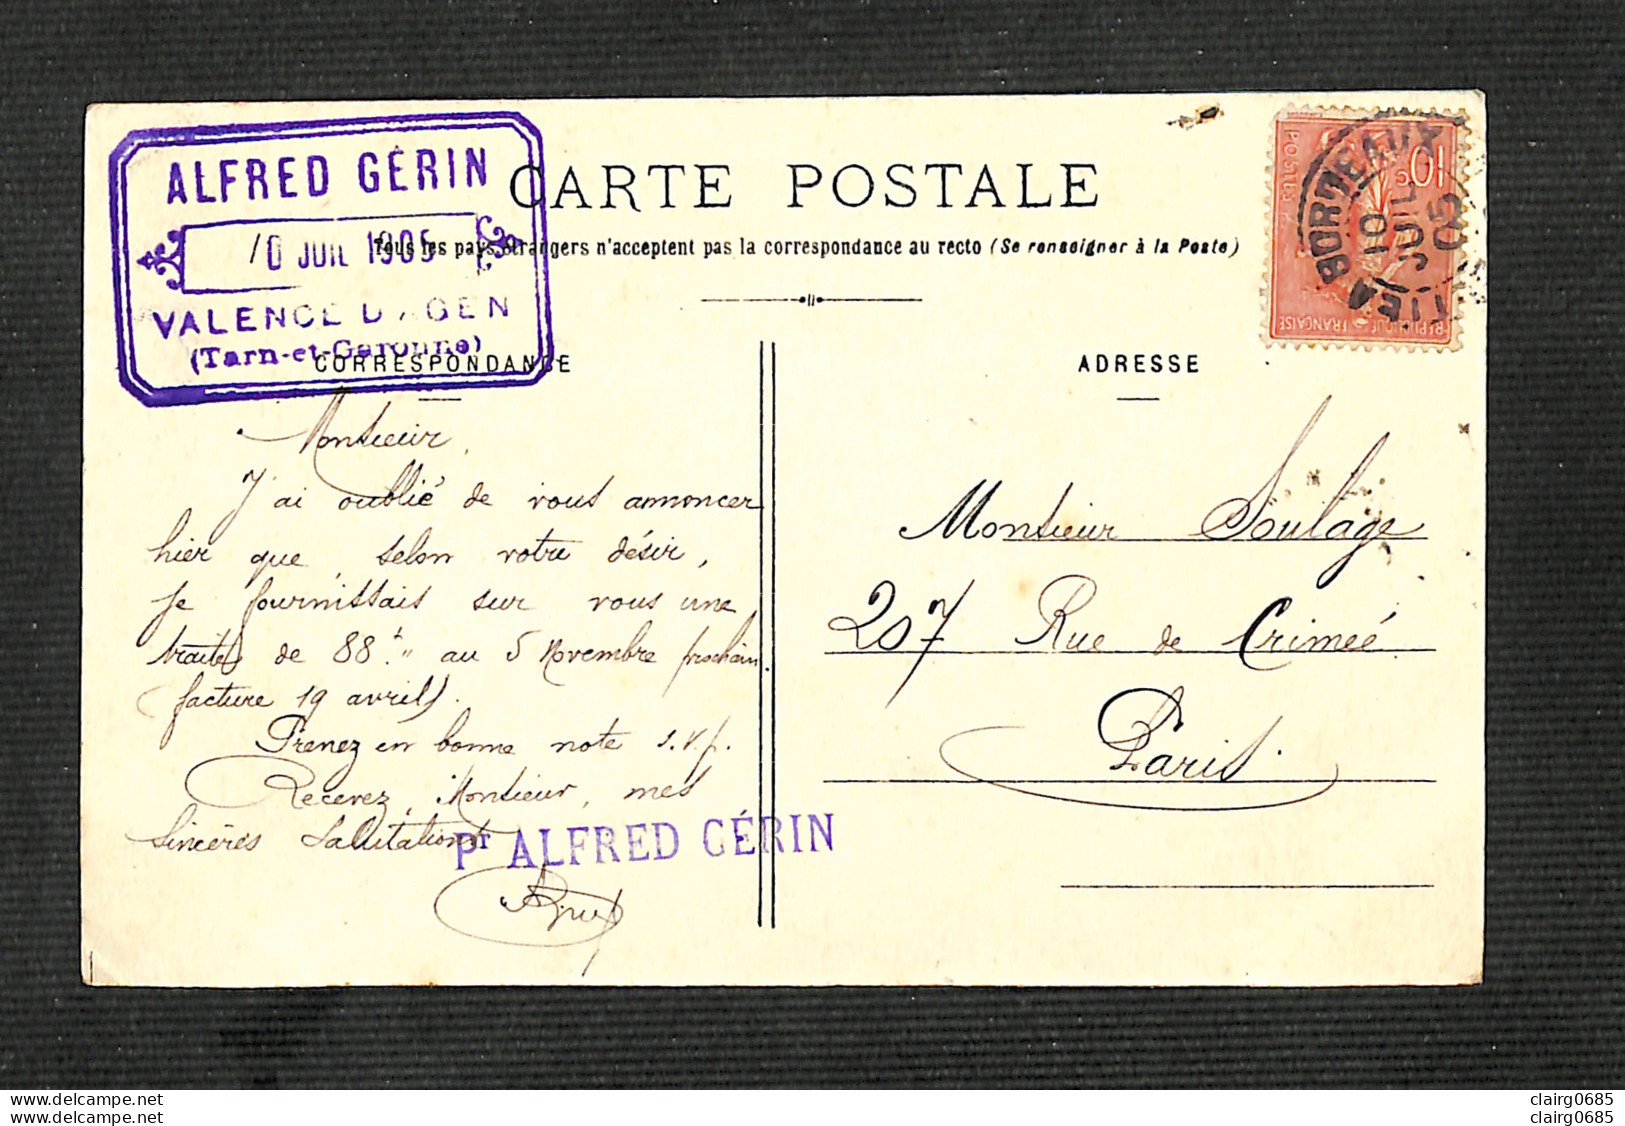 ALFRED GÉRIN
10 JUIL 1905
VALENCE D'AGEN
(Tarn-et-Garonne)
CARTE POSTALE
Tous les pays étrangers n'acceptent pas la correspondance au recto (Se renseigner à la Poste)
CORRESPONDANCE
Monsieur,
J'ai oublié de vous annoncer
hier que, selon votre désir,
je fournissais sur vous une
traite de 88f. " au 5 Novembre prochain.
(facture 19 avril).
Prenez en bonne note s.v.p.
Recevez, Monsieur, mes
sincères salutations
Pr ALFRED GÉRIN
ADRESSE
Monsieur Soulage
207 Rue de Crimeé
Paris.
BORDEAUX
10
JUIL
05
POSTES
10
RÉPUBLIQUE FRANÇAISE
clairg0685
clairg0685